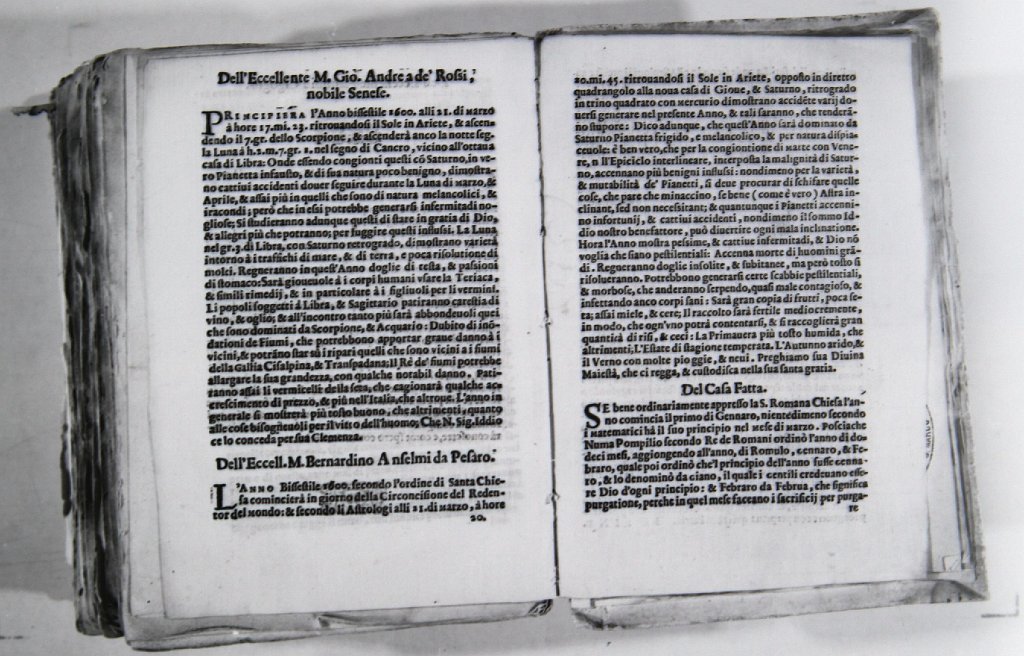 Dell'Eccellente M. Gio. Andrea de' Rossi,
nobile Senese.
PRINCIPIERA l'Anno bissestile 1600. alli 21. di Marzo
à hore 17. mi. 23. ritrouandosi il Sole in Ariete, & ascen-
dendo il 7. gr. dello Scorpione, & ascenderà anco la notte seg.
la Luna à h. 2. m. 7. gr. 2. nel segno di Cancro, vicino all'ottaua
casa di Libra: Onde essendo congionti questi cõ Saturno, in ve-
ro Pianetta infausto, & di sua natura poco benigno, dimostra-
no cattiui accidenti douer seguire durante la Luna di Marzo, &
Aprile, & assai più in quelli che sono di natura melancolici, &
iracondi; però che in essi potrebbe generarsi infermitadi no-
gliose; Si studieranno adunque questi di stare in gratia di Dio,
& allegri più che potranno; per fuggire questi influssi. La Luna
nel gr. 3. di Libra, con Saturno retrogrado, dimostrano varietà
intorno à traffichi di mare, & di terra, e poca risolutione di
molti. Regneranno in quest'Anno doglie di testa, & passioni
di stomaco: Sarà gioueuole à i corpi humani vsare la Teriaca,
& simili rimedij, & in particolare à i figliuoli per li vermini.
Li popoli soggetti à Libra, & Sagittario patiranno carestia di
vino, & oglio; & all'incontro tanto più sarà abbondeuoli quei
che sono dominati da Scorpione, & Acquario: Dubito di inõ-
dationi de Fiumi, che potrebbono apportar graue danno à i
vicini, & potrãno star sù i ripari quelli che sono vicini a i fiumi
della Gallia Cisalpina, & Transpadana; il Rè de' fiumi potrebbe
allargare la sua grandezza, con qualche notabil danno. Pati-
ranno assai li vermicelli della seta, che cagionarà qualche ac-
crescimento di prezzo, & più nell'Italia, che altroue. L'anno in
generale si mostrerà più tosto buono, che altrimenti, quanto
alle cose bisogneuoli per il vitto dell'huomo; Che N. Sig. Iddio
ce lo conceda per sua Clemenza.
Dell'Eccell. M. Bernardino Anselmi da Pesaro.
L'ANNO Bissestile 1600. secondo l'ordine di Santa Chie-
sa comincierà in giorno della Circoncisione del Reden-
tor del Mondo: & secondo li Astrologi alli 21. di Marzo, à hore
20.
20. mi. 45. ritrouandosi il Sole in Ariete, opposto in diretto
quadrangolo alla noua casa di Gioue, & Saturno, ritrogrado
in trino quadrato con Mercurio dimostrano accidẽte varij do-
uersi generare nel presente Anno, & tali saranno, che renderã-
no stupore: Dico adunque, che quest'Anno sarà dominato da
Saturno Pianetta frigido, e melancolico, & per natura dispia-
ceuole: è ben vero, che per la congiontione di Marte con Vene-
re, n ll'Epiciclo interlineare, interposta la malignità di Satur-
no, accennano più benigni influssi: nondimeno per la varietà,
& mutabilità de' Pianetti, si deue procurar di schifare quelle
cose, che pare che minaccino, se bene (come è vero) Astra in-
clinant, sed non necessitant; & quantunque i Pianetti accenni-
no infortunij, & cattiui accidenti, nondimeno il sommo Id-
dio nostro benefattore, può diuertire ogni mala inclinatione.
Hora l'Anno mostra pessime, & cattiue infermitadi, & Dio nó
voglia che siano pestilentiali: Accenna morte di huomini grã-
di. Regneranno doglie insolite, & subitanee, ma però tosto si
risolueranno. Potrebbono generarsi certe scabbie pestilentiali,
& morbose, che anderanno serpendo, quasi male contagioso, &
infettando anco corpi sani: Sarà gran copia di frutti, poca se-
ta; assai miele, & cere; Il raccolto sarà fertile mediocremente,
in modo, che ogn'vno potrà contentarsi, & si raccoglierà gran
quantità di risi, & ceci: La Primauera più tosto humida, che
altrimenti, L'Estate di stagione temperata. L'Autunno arido, &
il Verno con molte pioggie, & neui. Preghiamo sua Diuina
Maiestà, che ci regga, & custodisca nella sua santa gratia.
Del Casa Fatta.
SE bene ordinariamente appresso la S. Romana Chiesa l'an-
no comincia il primo di Gennaro, nientedimeno secondo
i Matematici hà il suo principio nel Mese di Marzo. Posciache
Numa Pompilio secondo Re de Romani ordinò l'anno di do-
deci mesi, aggiongendo all'anno, di Romulo, Gennaro, & Fe-
braro, quale poi ordinò che'l principio dell'anno fusse Genna-
ro, & lo denominò da Giano, il quale i gentili credeuano esse-
re Dio d'ogni principio: & Febraro da Februa, che significa
purgatione, perche in quel mese faceano i sacrificij per purga-
re